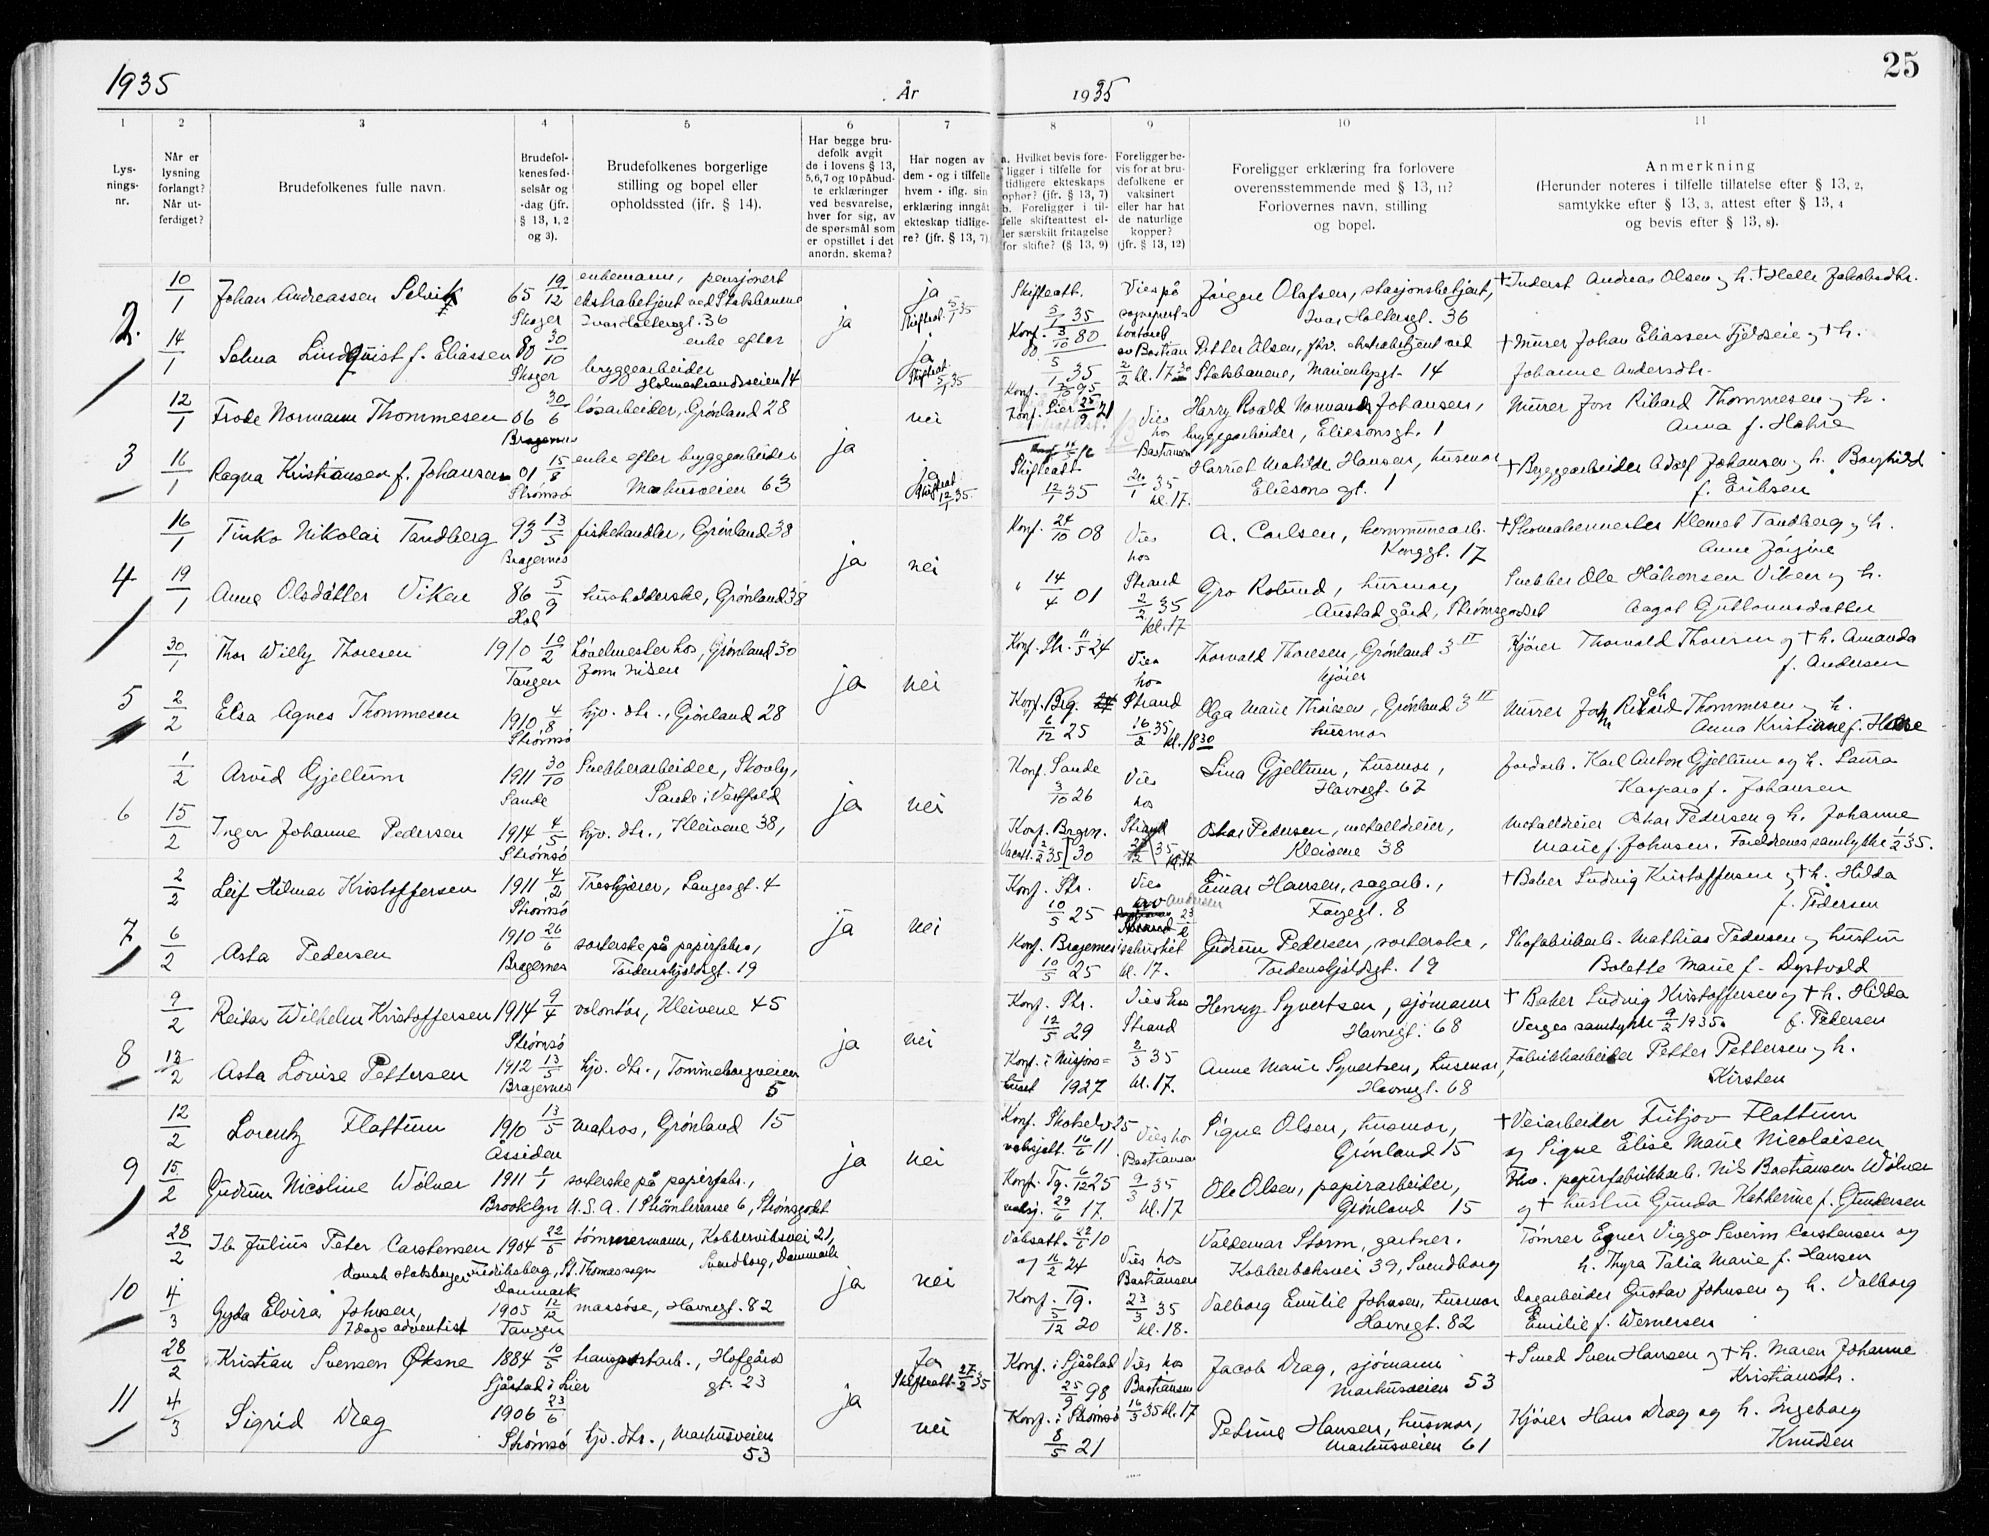 1935
År
1935
25
1
2
3
4
5
6
7
8
9
10
11
Lys-
nings-
nr.
Når er
lysning
forlangt?
Når ut-
ferdiget?
Brudefolkenes fulle navn.
Brudefol-
kenes fød-
selsår og
-dag (jfr.
§ 13, 1, 2
og 3).
Brudefolkenes borgerlige
stilling og bopel eller
opholdssted (ifr. § 14).
Har begge bru-
defolk avgit
de i lovens § 13,
5,6,7 og 10 påbud-
te erklæringer
ved besvarelse,
hver for sig, av
de spørsmål som
er opstillet i det
anordn. skema?
Har nogen av
dem - og i tilfelle
hvem - iflg. sin
erklæring inngåt
ekteskap tidlige-
re? (jfr. § 13, 7).
a. Hvilket bevis fore-
ligger i tilfelle for
tidligere ekteskaps
ophør? (jfr. § 13, 7)
b. Foreligger i til-
felle skifteattest el-
ler særskilt fritagelse
for skifte? (§ 13, 9)
Foreligger be-
vis for at bru-
defolkene er
vaksinert
eller har hat
de naturlige
kopper?
(jfr. § 13, 12)
Foreligger erklæring fra forlovere
overensstemmende med § 13, 11?
Forlovernes navn, stilling
og bopel.
Anmerkning
(Herunder noteres i tilfelle tillatelse efter § 13, 2,
samtykke efter § 13, 3, attest efter § 13, 4
og bevis efter § 13, 8).
2.
10/1
Johan Andreassen Selvik
65 19/12
Skoger
enkemann, pensjonert
ekstrabetjent ved Statsbanene
Ivar Hallersgt. 36
ja
ja
Skifteat. 5/1 35
Skifteatt.
5/1 35
Konf. 3/10 80
Vies på
Jørgen Olafsen, stasjonsbetjent,
Ivar Hallersgt. 36
+ Inderst Andreas Olsen og h. + Helle Jakobsdtr.
14/1
Selma Lindquist f. Eliassen
80 30/10
Skoger
enke efter
bryggearbeider
Holmestrandsveien 14
ja
Skifteat. 5/1 35
5/1 35
Konf. 95
av Bastian
2/2 kl. 17 30
Petter Olsen, fhv. ekstrabetjent ved
Statsbanene, Marienlysgt. 14
+ Murer Johan Eliassen Fjeldseie og + h.
Johanne Andersdtr.
3
12/1
Frode Normann Thommesen
06 30/6
Bragernes
løsarbeider, Grønland 28
ja
nei
Konf. Lier 25/9 21
Vies
hos
Bastiansen
Harry Roald Normann Johansen,
bryggearbeider, Eliesonsgt. 1
Murer Jon Rikard Thommesen og h.
Anna f. Høhre
16/1
Ragna Kristiansen f. Johansen
01 15/8
Strømsø
enke efter bryggearbeider
Marhusveien 63
ja
Skifteat.
12/1 35.
Skifteatt
12/1 35
26/1 35
kl. 17.
Harriet Matilde Hansen, husmor
Eliesons gt. 1
+ Byggearbeider Adolf Johansen og h. Borghild
f. Eriksen
4
16/1
Finko Nikolai Tandberg
93 13/5
Bragernes
fiskehandler, Grønland 38
ja
nei
Konf. 24/10 08
Vies
hos
A. Carlsen, kommunearb.
Konggt. 17
+ Skomakermester Klemet Tandberg og h.
Anne Jørgine
19/1
Anne Olsdatter Viken
86 5/9
Hol
husholderske, Grønland 38
" 14/4 01
Strand
2/2 35
kl. 17
Gro Kolund, husmor,
Austad gård, Strømsgodset
Snekker Ole Håkonsen Viken og h.
Aagot Guttormsdatter
5
30/1
Thor Willy Thoresen
1910 10/2
Tangen
Løvelmester hos, Grønland 30
Jonn Nilsen
ja
nei
Konf. Str. 11/5 24
Vies
hos
Thorvald Thoresen, Grønland 3 II
kjører
Kjører Thorvald Thoresen og + h. Amanda
f. Andersen
2/2
Elsa Agnes Thommesen
1910 4/8
Strømsø
hjv. dtr., Grønland 28
Konf. Brg.
6/12 25
Strand
16/2 35,
kl. 18 30
Olga Marie Thoresen, Grønland 3 II
husmor
Murer John Rikard Thommesen og h.
Anna Kristiane f. Høhre
6
1/2
Arvid Gjellum
1911 30/10
Sande
Snekkerarbeider, Skovly,
Sande i Vestfold
ja
nei
Konf. Sande
3/10 26
Vies
hos
Lina Gjellum, husmor,
Havnegt. 67
Jordarb. Karl Anton Gjellum og h. Laura
Kaspara f. Johansen
15/2
Inger Johanne Pedersen
1914 4/5
Strømsø
hjv. dtr., Kleivene 38,
Konf. Bragrn.
Strand
35
kl. 17
Oskar Pedersen, metalldreier,
Kleivene 38
Metalldreier Oskar Pedersen og h. Johanne
Marie f. Johnsen. Foreldrenes samtykke 1/2 35.
7
2/2
Leif Hilmar Kristoffersen
1911 4/2
Strømsø
Treskjærer, Langes gt. 4
ja
nei
Konf. Str.
10/5 25
Vies
av Andersen
Einar Hansen, sagarb.,
Fayegt. 8
+ Baker Ludvig Kristoffersen og + h. Hilda
f. Pedersen
6/2
Asta Pedersen
1910 26/6
Bragernes
sorterske på papirfabr.,
Tordenskjoldsgt. 19
Konf. Bragernes
10/5 25
kl. 17.
Gudrun Pedersen, sorterske,
Tordenskjoldsgt. 19
Skofabrikarb. Mathias Pedersen og hustru
Bolette Marie f. Dystvold
8
9/2
Reidar Wilhelm Kristoffersen
1914 9/4
Strømsø
volontør, Kleivene 45
ja
nei
Konf. Str.
12/5 29
Vies hos
Strand
Henry Syvertsen, sjømann
Havnegt. 68
+ Baker Ludvig Kristoffersen og + h. Hilda
Verges samtykke 9/2 1935. f. Pedersen
13/2
Asta Lovise Pettersen
1912 13/5
Bragernes
hjv. dtr., Tømmeborgveien
5
Konf. i Misjons-
huset 1927
2/3 35
kl. 17.
Anne Marie Syvertsen, husmor,
Havnegt. 68
Fabrikkarbeider Petter Pettersen og h.
Kirsten
9
12/2
Lorentz Flattum
1910 13/5
Åssiden
matros, Grønland 15
ja
nei
Konf. Skotselv 25
16/6 11
Vies hos
Bastiansen
Signe Olsen, husmor,
Grønland 15
+ Veiarbeider Fritjov Flattum
og Signe Elise Marie Nicolaisen
15/2
Gudrun Nicoline Wølner
1911 1/1
Brooklyn U.S.A.
sorterske på papirfabr.,
Strømterrasse 6, Strømsgodset
Konf. Tg. 6/12 25
29/6 17.
9/3 35
kl. 17
Ole Olsen, papirarbeider,
Grønland 15
Fhv. papirfabrikkarb. Nils Bastiansen Wølner
og + hustru Gunda Katherine f. Gundersen
10
28/2
Ib Julius Peter Carstensen
dansk statsborger
1904 22/5
Fredriksberg, St. Thomas sogn
Danmark
tømmermann, Kobberviksvei 21,
Svendborg, Danmark
ja
nei
Vaksatt. 22/6 10
og 11/2 24
Vies hos
Bastiansen
Valdemar Storm, gartner.
Kobberbæksvei 39, Svendborg
Tømrer Egner Viggo Severin Carstensen og
h. Thyra Talia Marie f. Hansen
4/3
Gyda Elvira Johnsen,
7dags adventist
1905 12/12
Tangen
massøse, Havnegt. 82
Konf. Tg.
5/12 20
23/3 35
kl. 18.
Valborg Emilie Johnsen, husmor
Havnegt. 82
Dagarbeider Gustav Johnsen og h. Valborg
Emilie f. Wernersen
11
28/2
Kristian Svensen Øksne
1884 10/5
Sjåstad i Lier
transportarb., Hofgårds
gt. 23
ja
Ja
Skifteatt. 27/2 35
Konf. i Sjåstad
25/9 98
Vies hos
Bastiansen
Jacob Drag, sjømann
Marhusveien 53
+ Smed Sven Hansen og + h. Maren Johanne
Kristiansdtr.
4/3
Sigrid Drag
1906 23/6
Strømsø
hjv. dtr., Marhusveien
53
nei
Konf. i Strømsø
8/5 21
16/3 35 kl. 17
Petrine Hansen, husmor,
Marhusveien 61
Kjører Hans Drag og h. Ingeborg
Knudsen